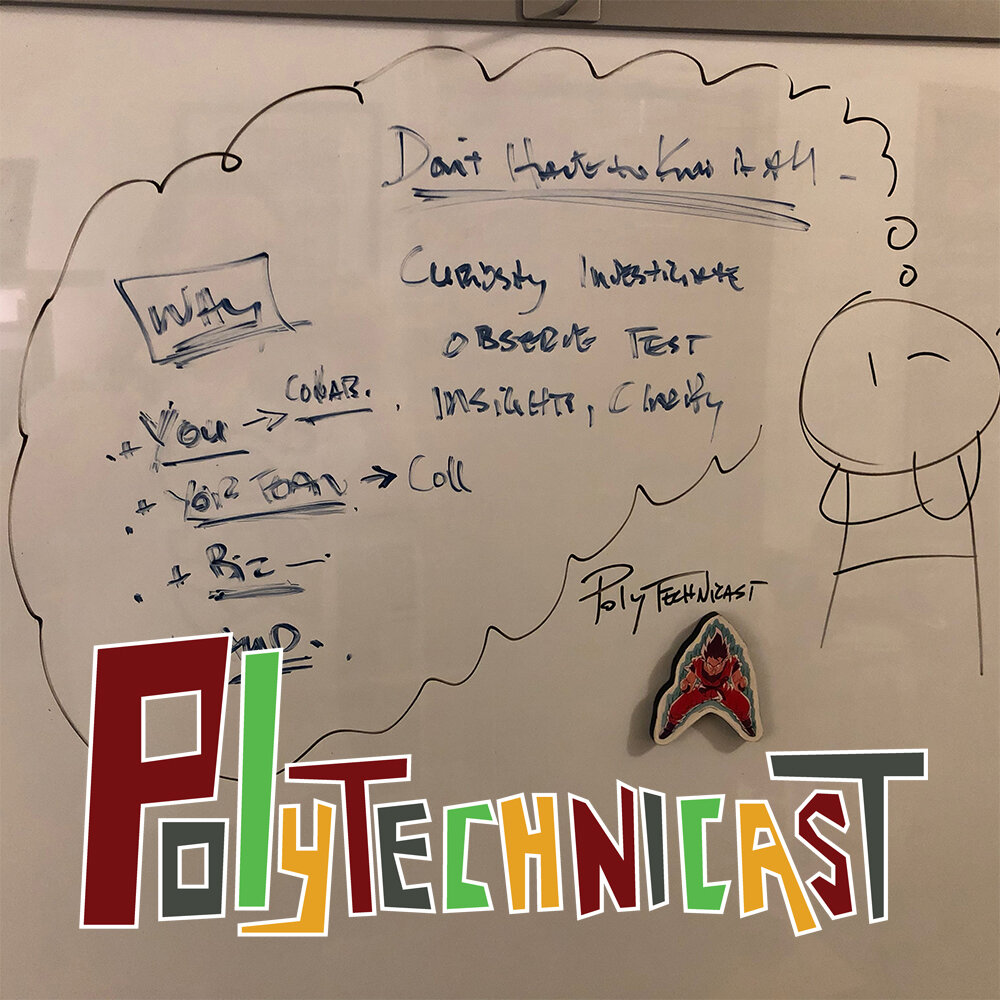 Don't Have to Know it All -
Curiosity Investigate
Observe Test
Insights, Clarity
Why
+ You → Collab.
+ Your Team → Coll
+ Biz —
Poly Technicast
PolyTechnicast